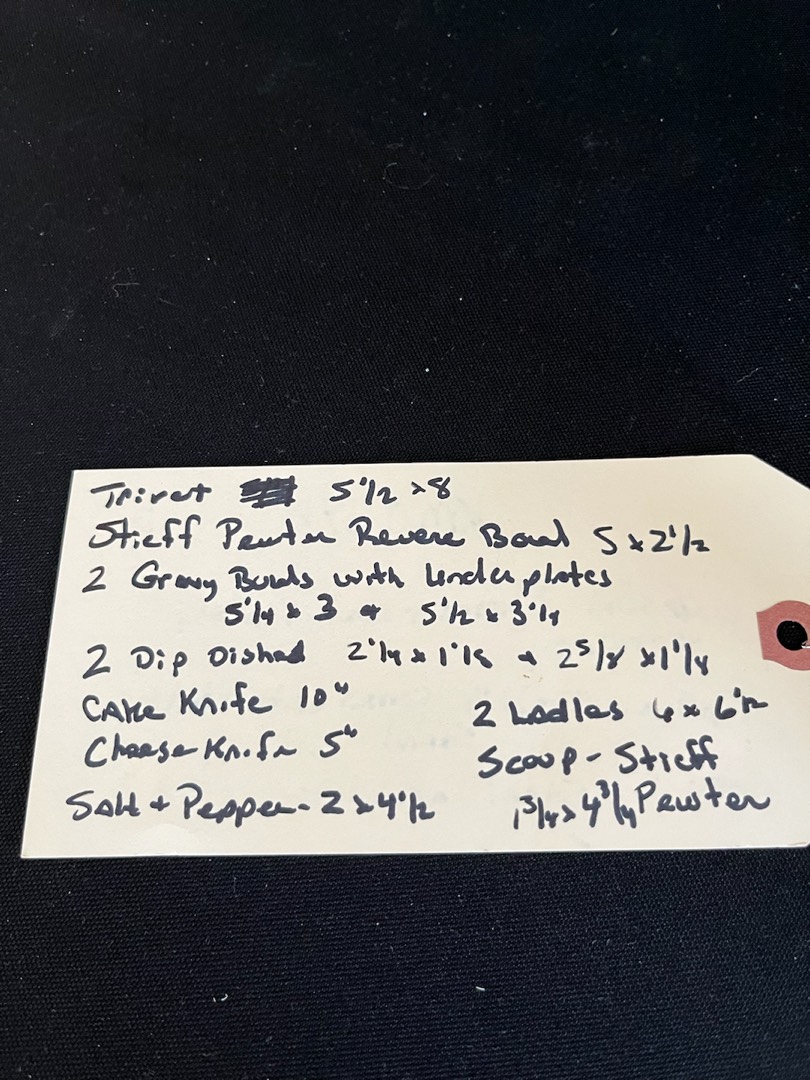 Trivet 5 1/2 x 8
Stieff Pewter Revere Bowl 5 x 2 1/2
2 Gravy Bowls with Underplates
5 1/4 x 3 + 5 1/2 x 3 1/4
2 Dip Dished 2 1/4 x 1 1/8 + 2 5/8 x 1 1/4
Cake Knife 10"
Cheese Knife 5"
Salt + Pepper - 2 x 4 1/2
2 Ladles x 6 1/2
Scoop - Stieff
1 3/4 x 4 3/4 Pewter